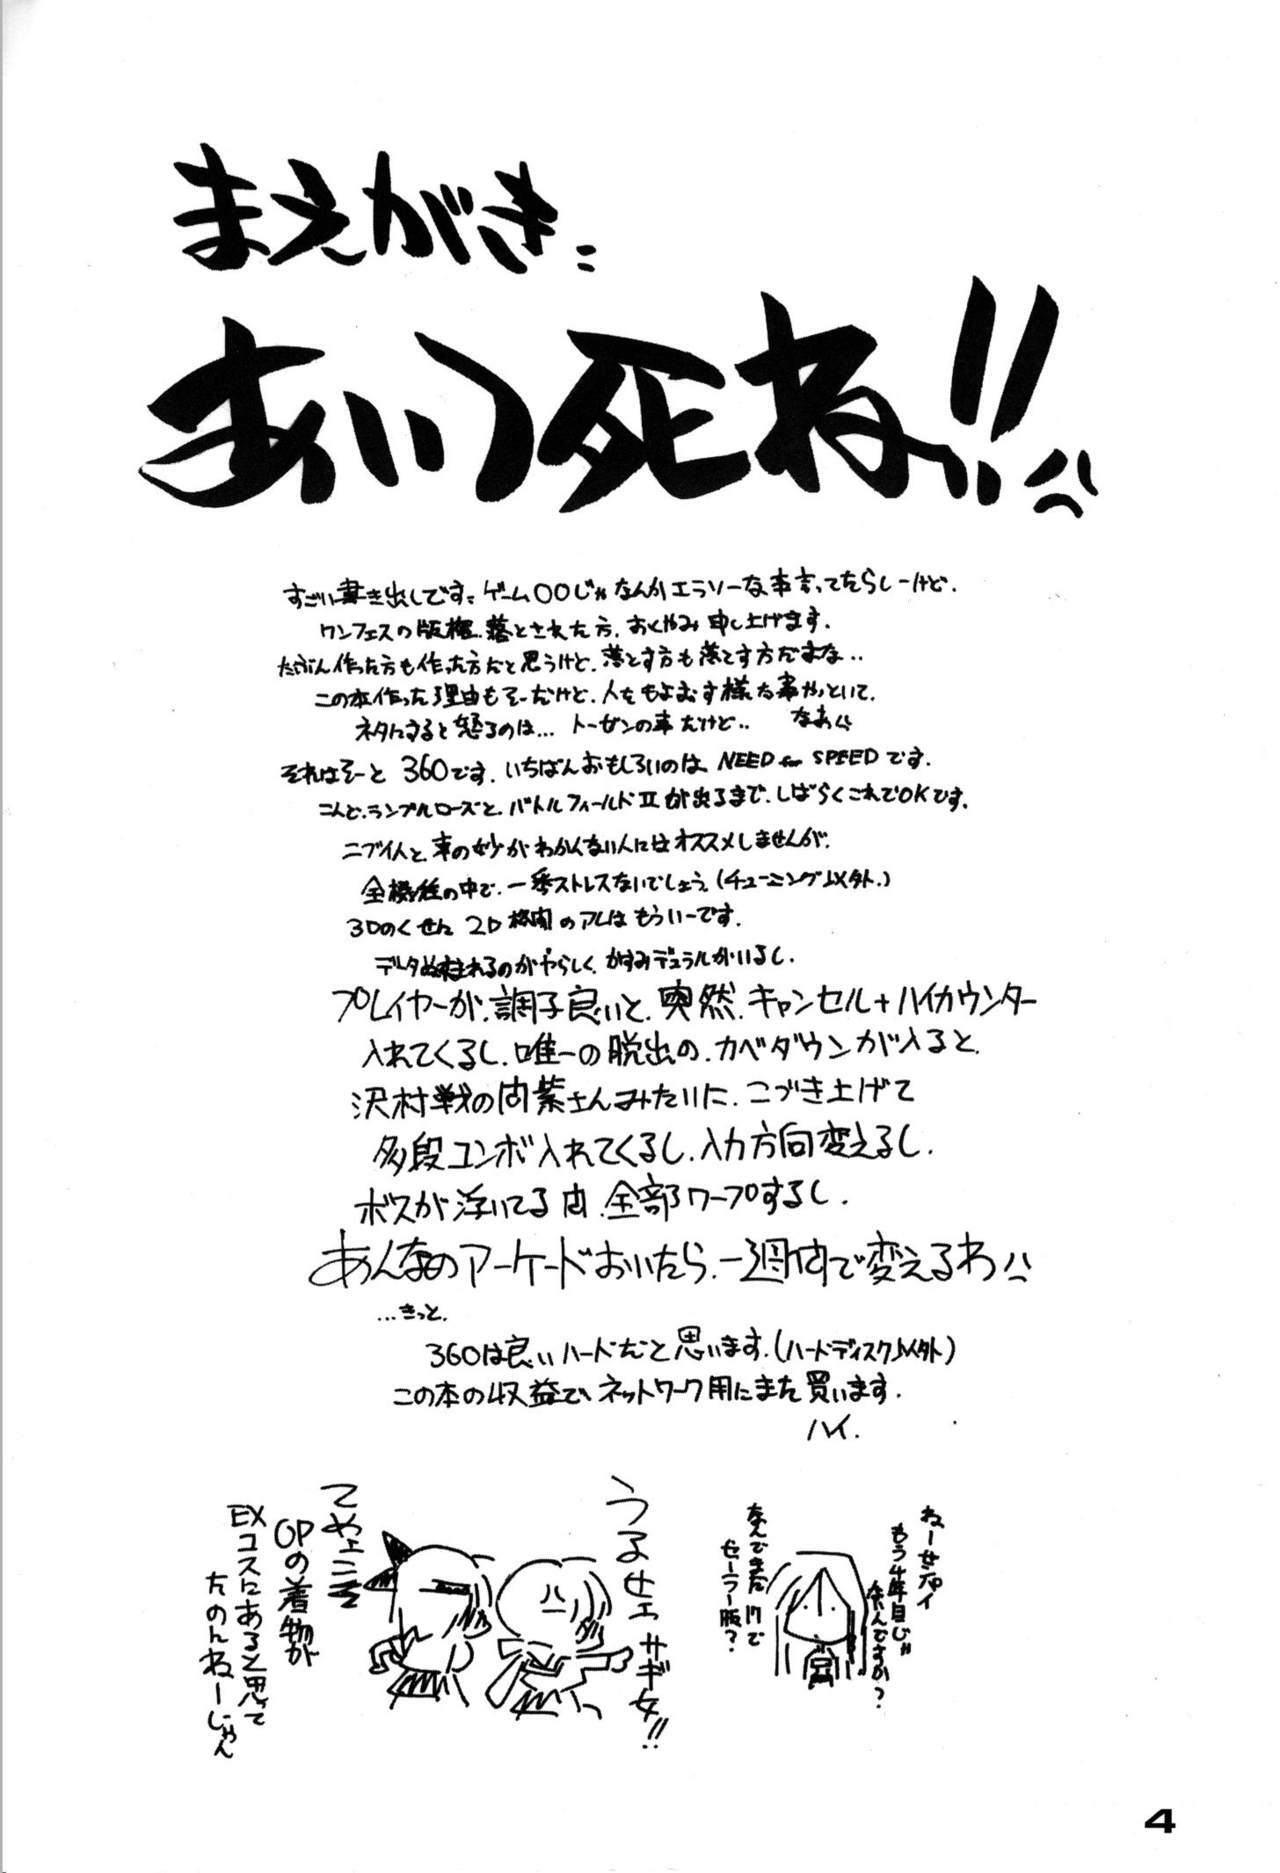 まえがき:
あいつ死ね!!
すごい書き出しです。ゲーム〇〇じゃなんかエラソーな事言ってたらしーけど、
ワンフェスの版権、落とされた方、おくやみ申し上げます。
たぶん作った方も作った方だと思うけど、落とす方も落とす方だよな..
この本作った理由もそーだけど、人をもよおす様な事やっといて、
ネタにすると怒るのは... トーゼンの事だけど.. なあ
それはそーと 360です。いちばんおもしろいのは NEED for SPEEDです。
こんど、ランブルローズと、バトルフィールドⅡが出るまで、しばらくこれでOKです。
ニブイ人と、車の妙がわかんない人にはオススメしませんが、
全機種の中で、一番ストレスないでしょう。(チューニング以外。)
3Dのくせに 2D格闘のアレはもういーです。
データぬすまれるのがやらしく、かすみデュラルがいるし、
プレイヤーが、調子良いと、突然、キャンセル+ハイカウンター
入れてくるし、唯一の脱出の、カベダウンが入ると、
沢村戦の間柴さんみたいに、こづき上げて
多段コンボ入れてくるし、入力方向変えるし、
ボスが浮いてる間、全部ワープするし、
あんなのアーケードおいたら、一週間で変えるわ
...きっと、
360は良いハードだと思います。(ハードディスク以外)
この本の収益で、ネットワーク用にまた買います。
ハイ.
ねーセンパイ
もう4年目じゃ
ないんですか?
なんでまた17で
セーラー服?
うるせェサギ女!!
てやェ
OPの着物が
EXコスにあると思って
たのんねーじゃん
4